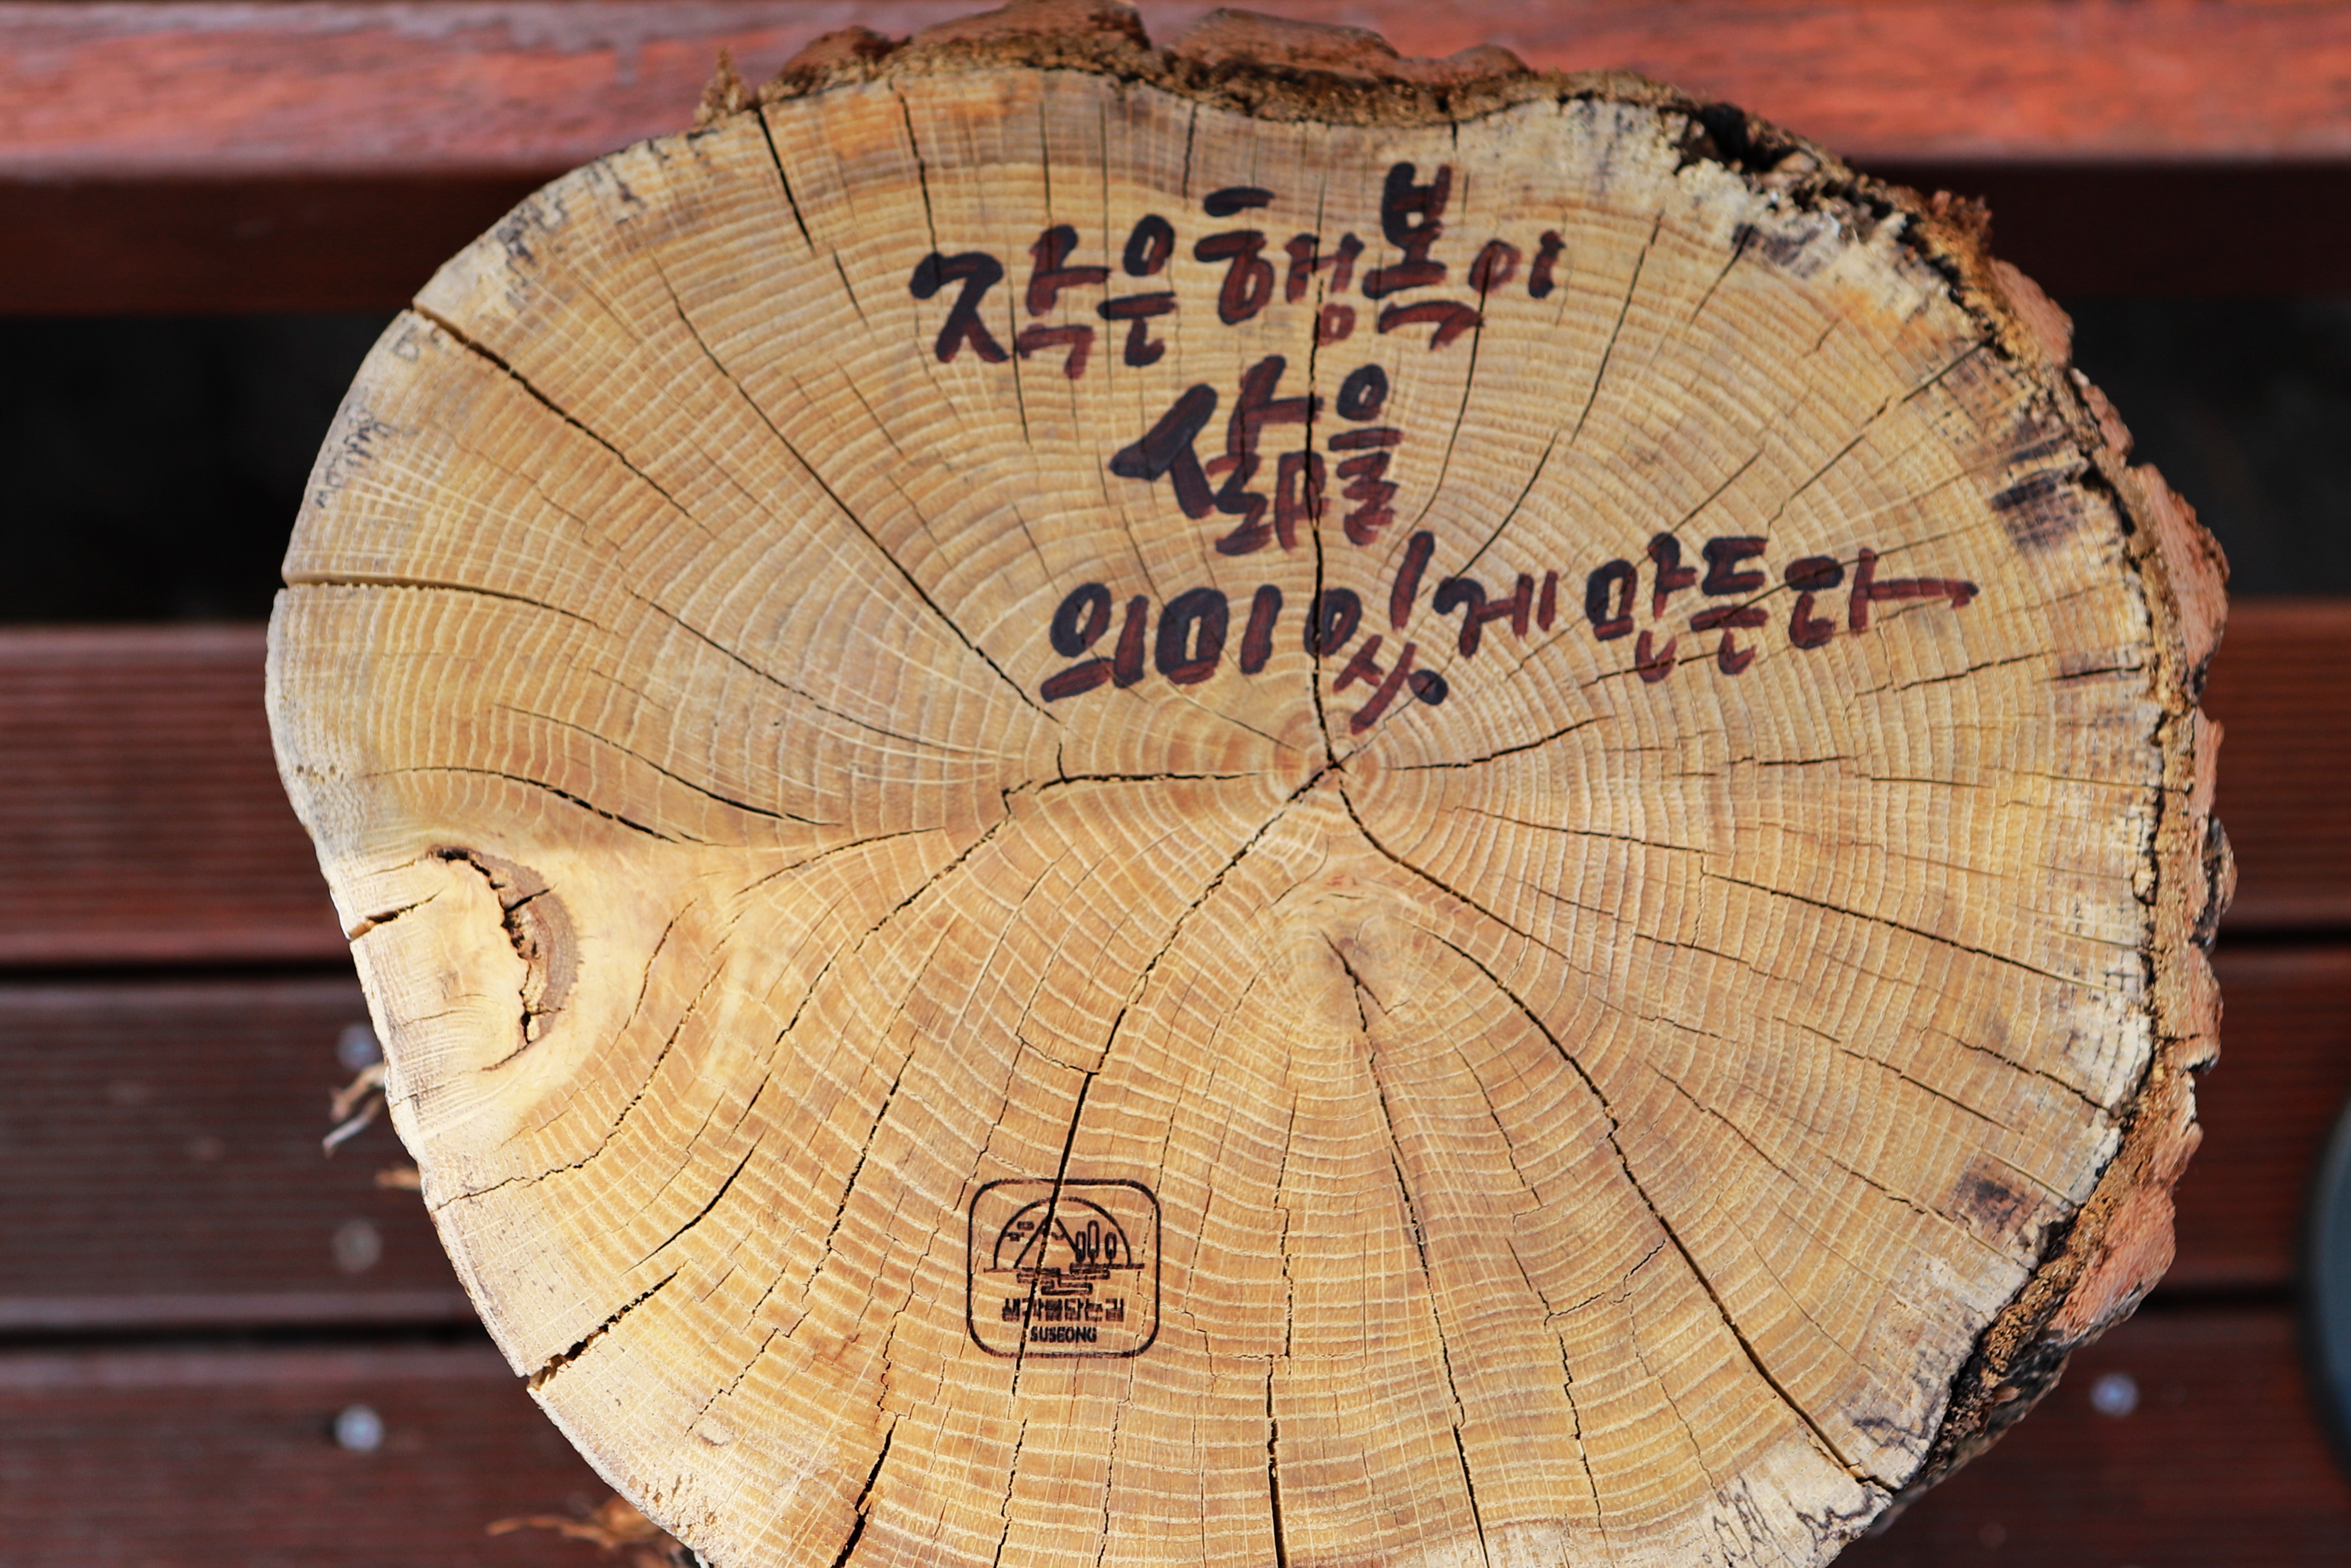 작은 행복이
삶을
의미 있게 만든다
생각을담는길
SUSEONG